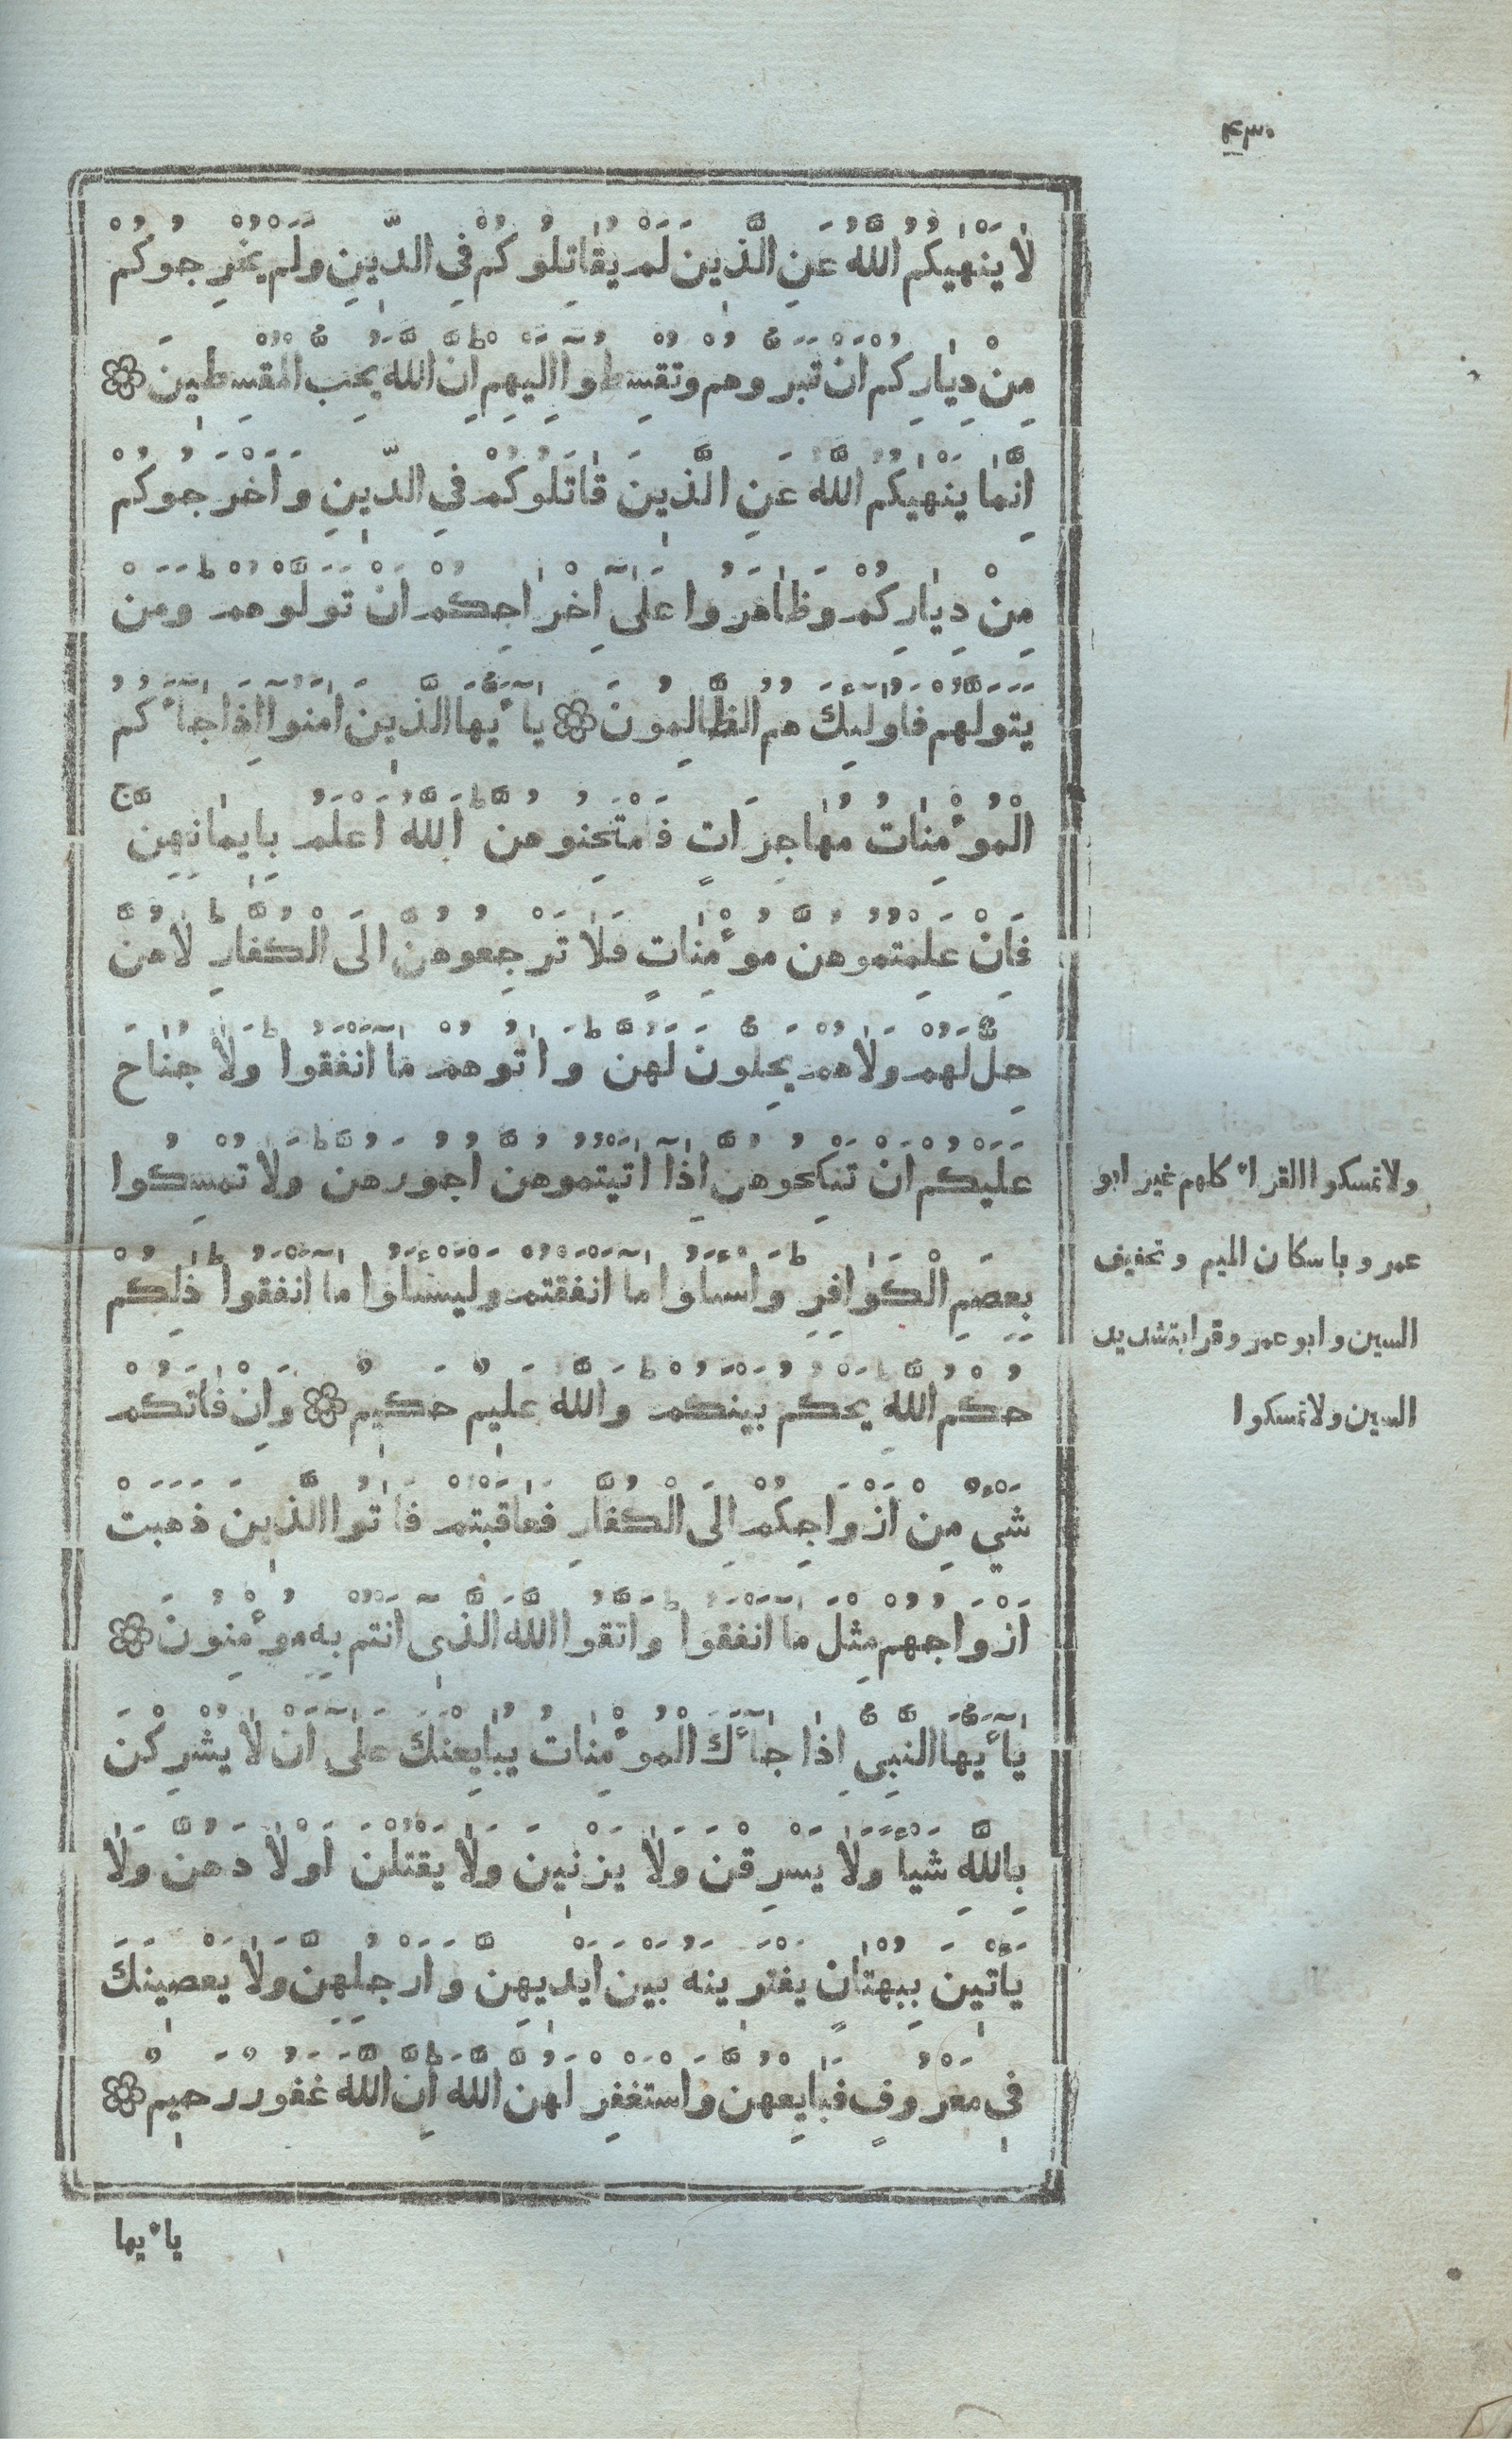 ۴۳۰
لاٰ يَنْهٰيكُمُ اللَّهُ عَنِ الَّذ۪ينَ لَمْ يُقٰاتِلُوكُمْ فِي الدّ۪ينِ وَلَمْ يُخْرِجُوكُمْ
مِنْ دِيٰارِكُمْ اَنْ تَبَرُّوهُمْ وَتُقْسِطُوآ اِلَيْهِمْ ط اِنَّ اللَّهَ يُحِبُّ الْمُقْسِط۪ينَ
اِنَّمٰا يَنْهٰيكُمُ اللَّهُ عَنِ الَّذ۪ينَ قٰاتَلُوكُمْ فِي الدّ۪ينِ وَاَخْرَجُوكُمْ
مِنْ دِيٰارِكُمْ وَظٰاهَرُوا عَلٰىٓ اِخْرٰاجِكُمْ اَنْ تَوَلَّوْهُمْ ط وَمَنْ
يَتَوَلَّهُمْ فَاُولٰٓئِكَ هُمُ الظَّالِمُونَ يٰآءَيُّهَا الَّذ۪ينَ اٰمَنُوآ اِذٰا جٰآءَكُمُ
الْمُؤْمِنٰاتُ مُهٰاجِرَاتٍ فَامْتَحِنُوهُنَّ ط اَللَّهُ اَعْلَمُ بِا۪يمٰانِهِنَّ ج
فَاِنْ عَلِمْتُمُوهُنَّ مُؤْمِنٰاتٍ فَلاٰ تَرْجِعُوهُنَّ اِلَى الْكُفَّارِ ط لاٰهُنَّ
حِلٌّ لَهُمْ وَلاٰهُمْ يَحِلُّونَ لَهُنَّ ط وَاٰتُوهُمْ مٰآ اَنْفَقُوا ط وَلاٰ جُنٰاحَ
عَلَيْكُمْ اَنْ تَنْكِحُوهُنَّ اِذٰآ اٰتَيْتُمُوهُنَّ اُجُورَهُنَّ ط وَلاٰ تُمْسِكُوا
بِعِصَمِ الْكَوٰافِرِ ط وَاسْئَلُوا مٰآ اَنْفَقْتُمْ وَلْيَسْئَلُوا مٰآ اَنْفَقُوا ط ذٰلِكُمْ
حُكْمُ اللَّهِ ط يَحْكُمُ بَيْنَكُمْ ط وَاللَّهُ عَل۪يمٌ حَك۪يمٌ وَاِنْ فٰاتَكُمْ
شَيْءٌ مِنْ اَزْوَاجِكُمْ اِلَى الْكُفَّارِ فَعٰاقَبْتُمْ فَاٰتُوا الَّذ۪ينَ ذَهَبَتْ
اَزْوٰاجُهُمْ مِثْلَ مٰآ اَنْفَقُوا ط وَاتَّقُوا اللَّهَ الَّذ۪ىٓ اَنْتُمْ بِهِ مُؤْمِنُونَ
يٰآءَيُّهَا النَّبِىُّ اِذٰا جٰآءَكَ الْمُؤْمِنٰاتُ يُبٰايِعْنَكَ عَلٰىٓ اَنْ لاٰ يُشْرِكْنَ
بِاللَّهِ شَيْئاً وَلاٰ يَسْرِقْنَ وَلاٰ يَزْن۪ينَ وَلاٰ يَقْتُلْنَ اَوْلاٰدَهُنَّ وَلاٰ
يَأْت۪ينَ بِبُهْتٰانٍ يَفْتَر۪ينَهُ بَيْنَ اَيْد۪يهِنَّ وَاَرْجُلِهِنَّ وَلاٰ يَعْص۪ينَكَ
ف۪ى مَعْرُوفٍ فَبٰايِعْهُنَّ وَاسْتَغْفِرْ لَهُنَّ اللَّهَ ط اِنَّ اللَّهَ غَفُورٌ رَح۪يمٌ
ولا تمسكوا القراء كلهم غير ابو
عمرو باسكان الميم وتخفيف
السين وابو عمرو قرا بتشديد
السين ولا تمسكوا
ياءيها